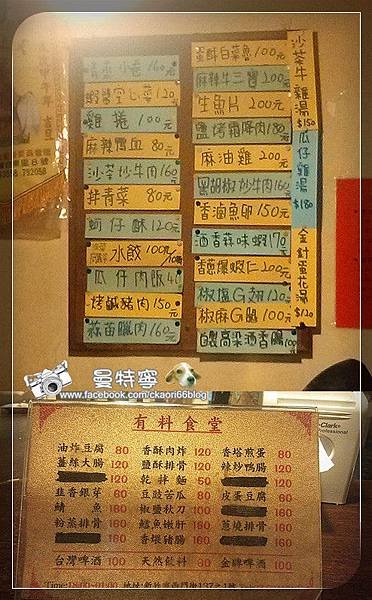 沙茶牛 雞湯 $150
瓜仔雞湯 $180
金針蛋花湯 $120
蛋酥白菜魯 100元
麻辣牛三寶 200元
生魚片 200元
鹽烤霜降肉 180元
麻油雞 200元
黑胡椒炒牛肉 160元
香滷魚卵 150元
酒香蒜味蝦 170元
香蔥爆蝦仁 200元
椒塩G翅 120元
椒麻G腸 100元
自製高梁酒香腸 100元
青蛋小卷 160元
蝦醬空心菜 120元
雞捲 100元
麻辣鴨血 80元
沙茶炒牛肉 160元
拌青菜 80元
蚵仔酥 120元
水餃 100元/10個
瓜仔肉飯 40
烤鹹豬肉 150元
蒜苗臘肉 160元
曼特寧
www.facebook.com/ckaori66blog
有料食堂
油炸豆腐 80 香酥肉炸 120 香塔煎蛋 80
薑絲大腸 120 鹽酥排骨 120 辣炒鴨腸 120
乾拌麵 50
韭香銀芽 80 豆豉苦瓜 80 皮蛋豆腐 60
鯖魚 100 椒鹽秋刀 100
粉蒸排骨 100 鱈魚嫩肝 180 蔥燒排骨 160
香煨豬腸 180
台灣啤酒 100 天然飲料 30 金牌啤酒 100
Time:18:00~01:00 地址:新竹市西門街137之1號